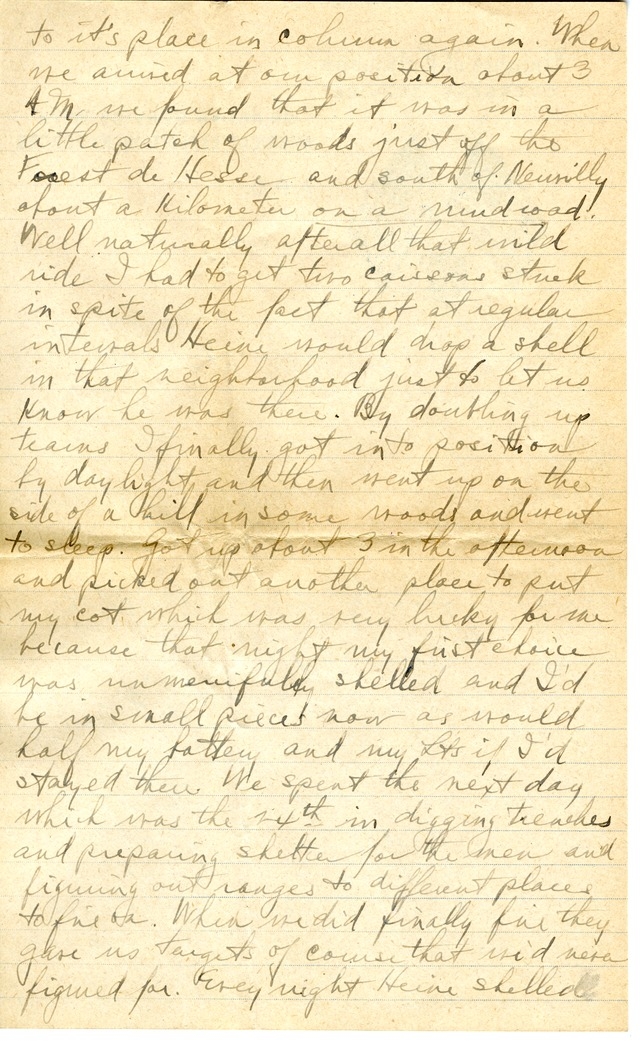 to it's place in column again. When
we arrived at our position about 3
AM we found that it was in a
little patch of woods just off the
Forest de Hesse and south of Neuvilly
about a Kilometer on a mud road.
Well naturally after all that wild
ride I had to get two caissons stuck
in spite of the fact that at regular
intervals Heine would drop a shell
in that neighborhood just to let us
know he was there. By doubling up
teams I finally got into position
by daylight and then went up on the
side of a hill in some woods and went
to sleep. Got up about 3 in the afternoon
and picked out another place to put
my cot which was very lucky for me
because that night my first choice
was unmercifully shelled and I'd
be in small pieces now as would
half my battery and my Lts if I'd
stayed there. We spent the next day
which was the 24th in digging trenches
and preparing shelter for the men and
figuring out ranges to different places
to fire on. When we did finally fire they
gave us targets of course that we'd never
figured for. Every night Heine shelled